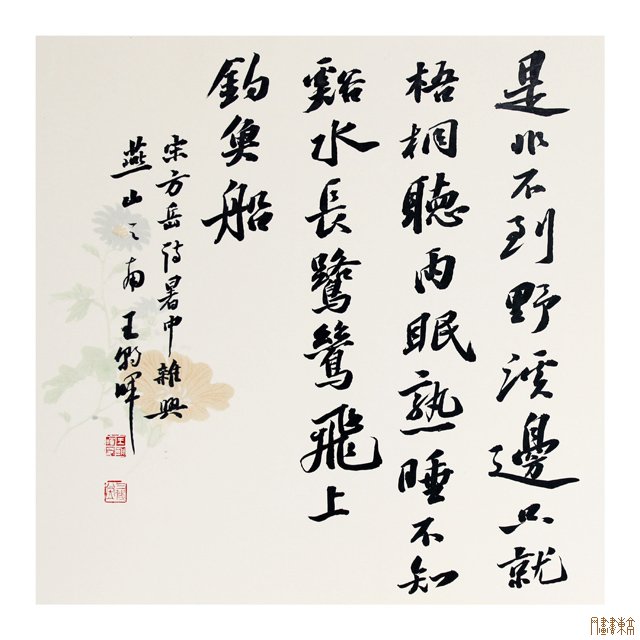 是非不到野溪邊只就
梧桐聽雨眠熟睡不知
谿水長鷺鷥飛上
釣魚船
宋方岳詩暑中雜興
燕山之南王